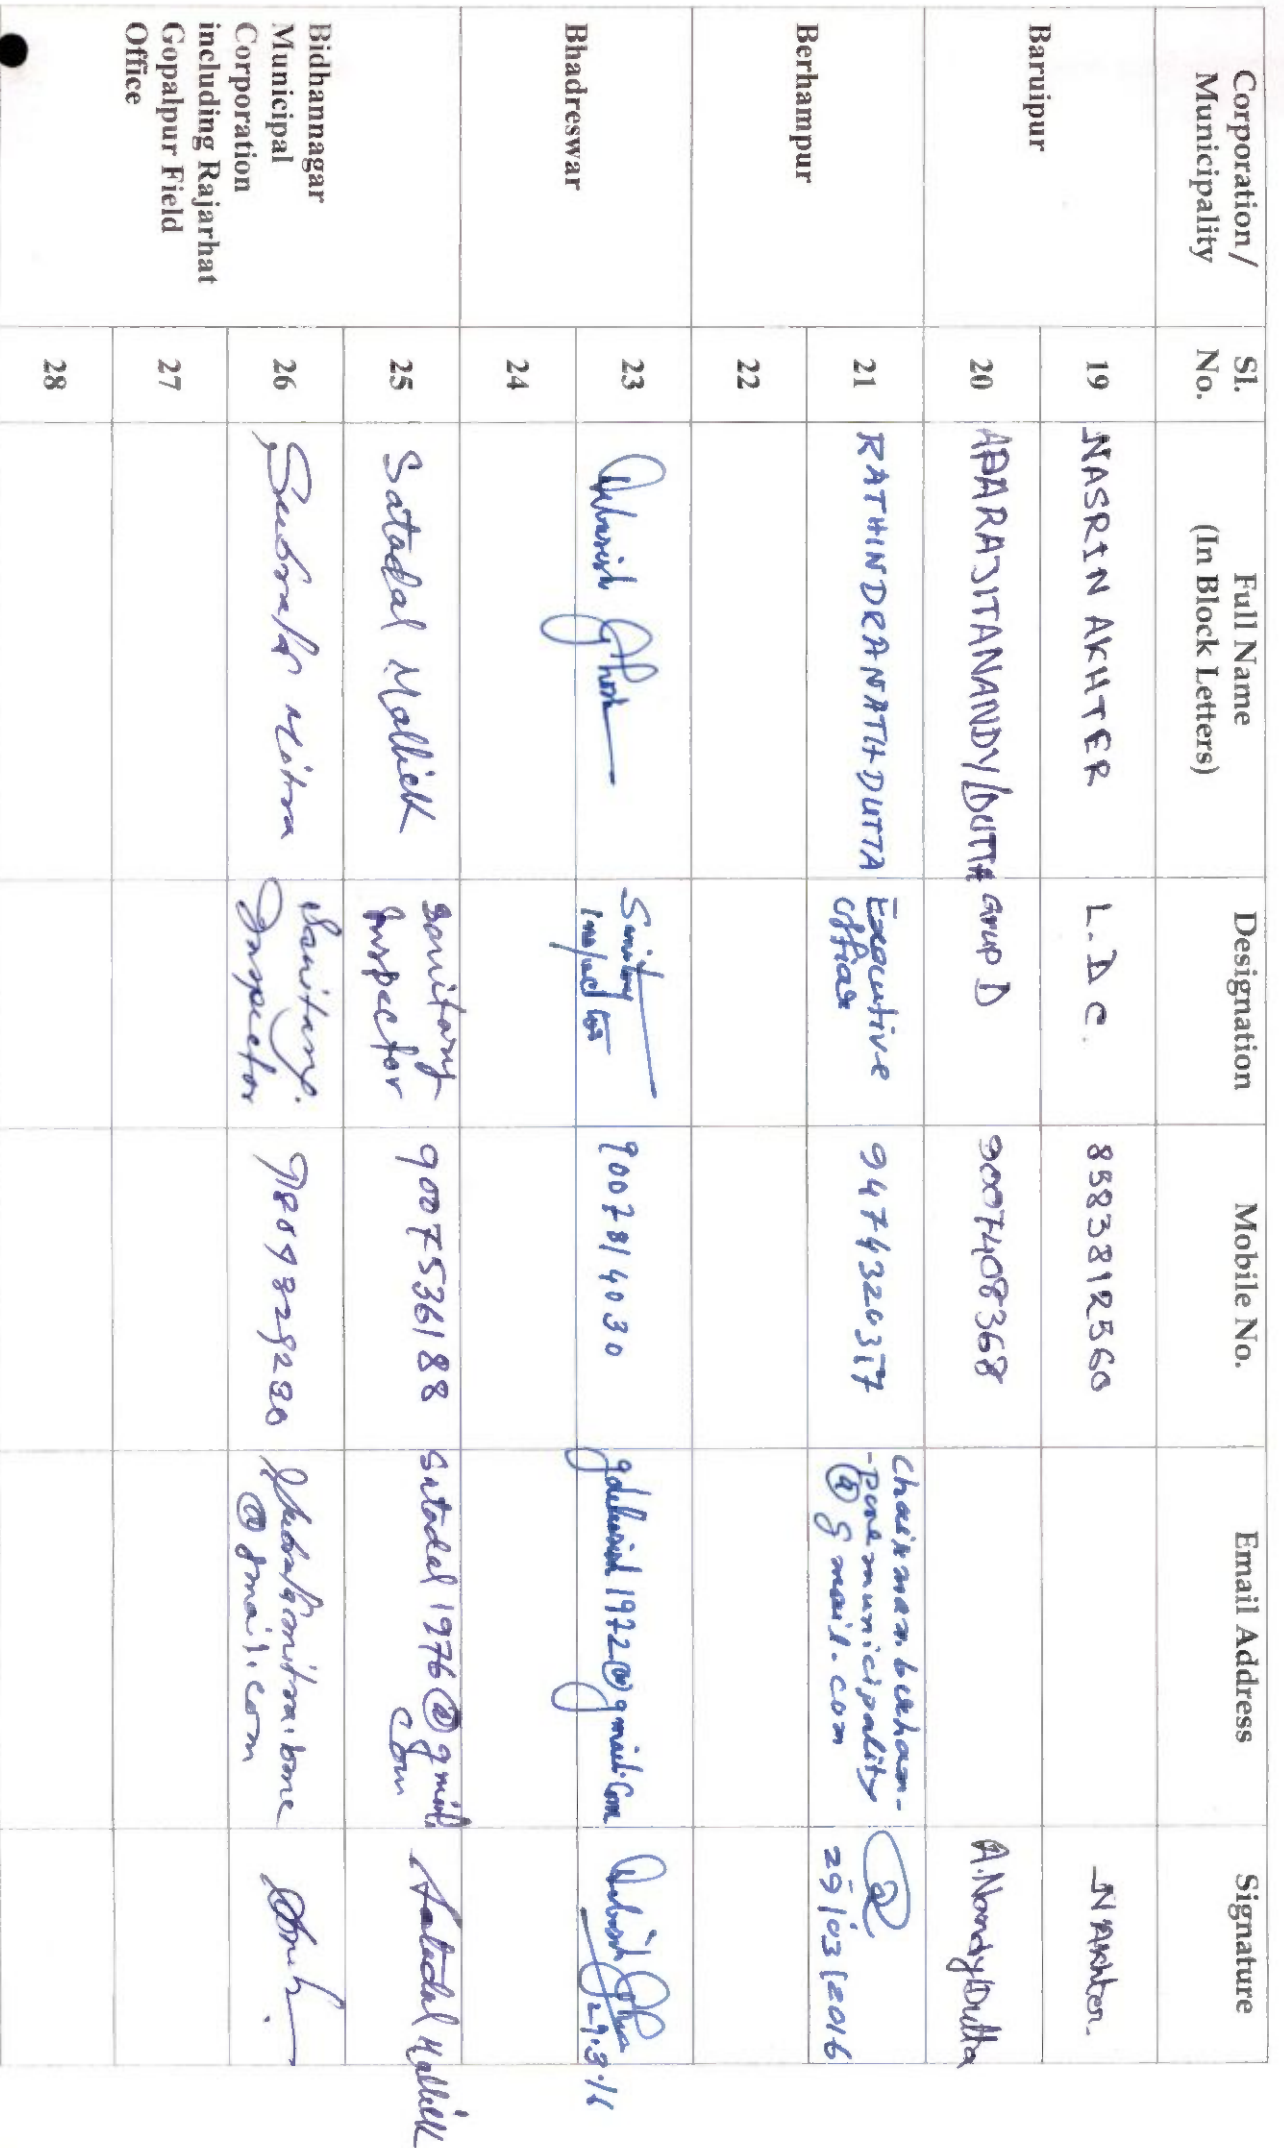 Corporation / Municipality Sl. No. Full Name (In Block Letters) Designation Mobile No. Email Address Signature
Baruipur
19 NASRIN AKHTER L.D.C. 8583812560 NAkhter.
20 APARAJITA NANDY/DUTTA Group D 9007408368 A.Nandy/Dutta
Berhampur
21 RATHINDRANATH DUTTA Executive Officer 9474320317 Chairman.berham-
-pore municipality
@gmail.com
29/03/2016
22
Bhadreswar
23 Debasish Ghosh Sanitary Inspector 9007814030 gdebasish1972@gmail.com Debasish Ghosh
29.3.16
24
Bidhannagar
Municipal
Corporation
including Rajarhat
Gopalpur Field
Office
25 Satadal Mallick Sanitary Inspector 9007536188 Satadal1976@gmail.com Satadal Mallick
26 Subrata Mitra Sanitary Inspector @gmail.com
27
28